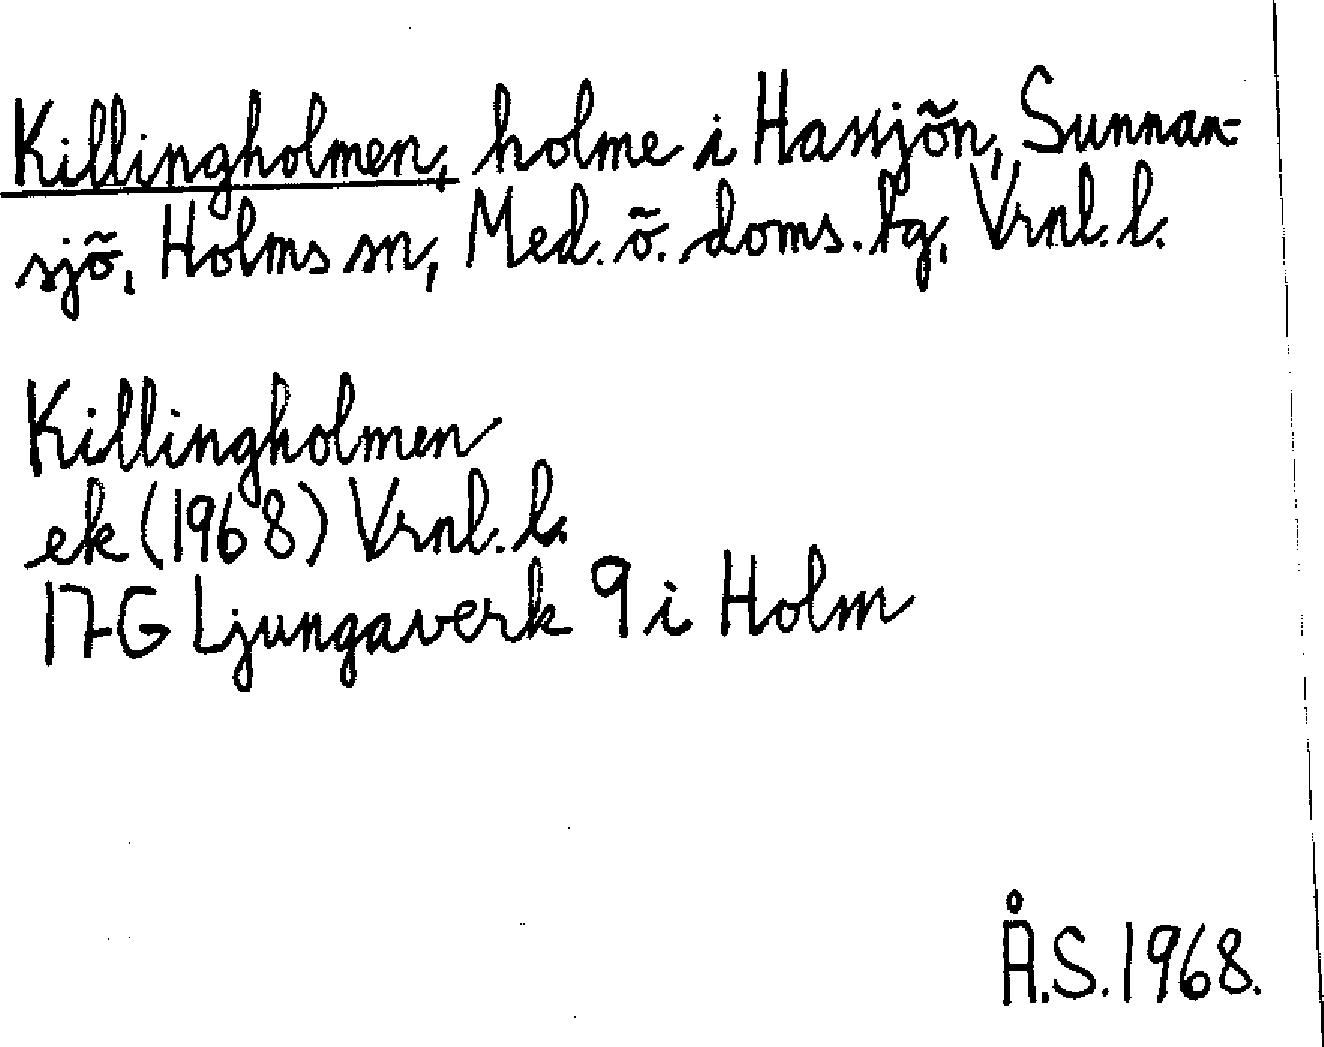 Killingholmen, holme i Hassjön, Sunnan-
sjö, Holms sn, Med. ö. doms. tg, Vrnl. l.
Killingholmen
ek (1968) Vrnl. l.
17G Ljungaverk 9 i Holm
Å.S. 1968.